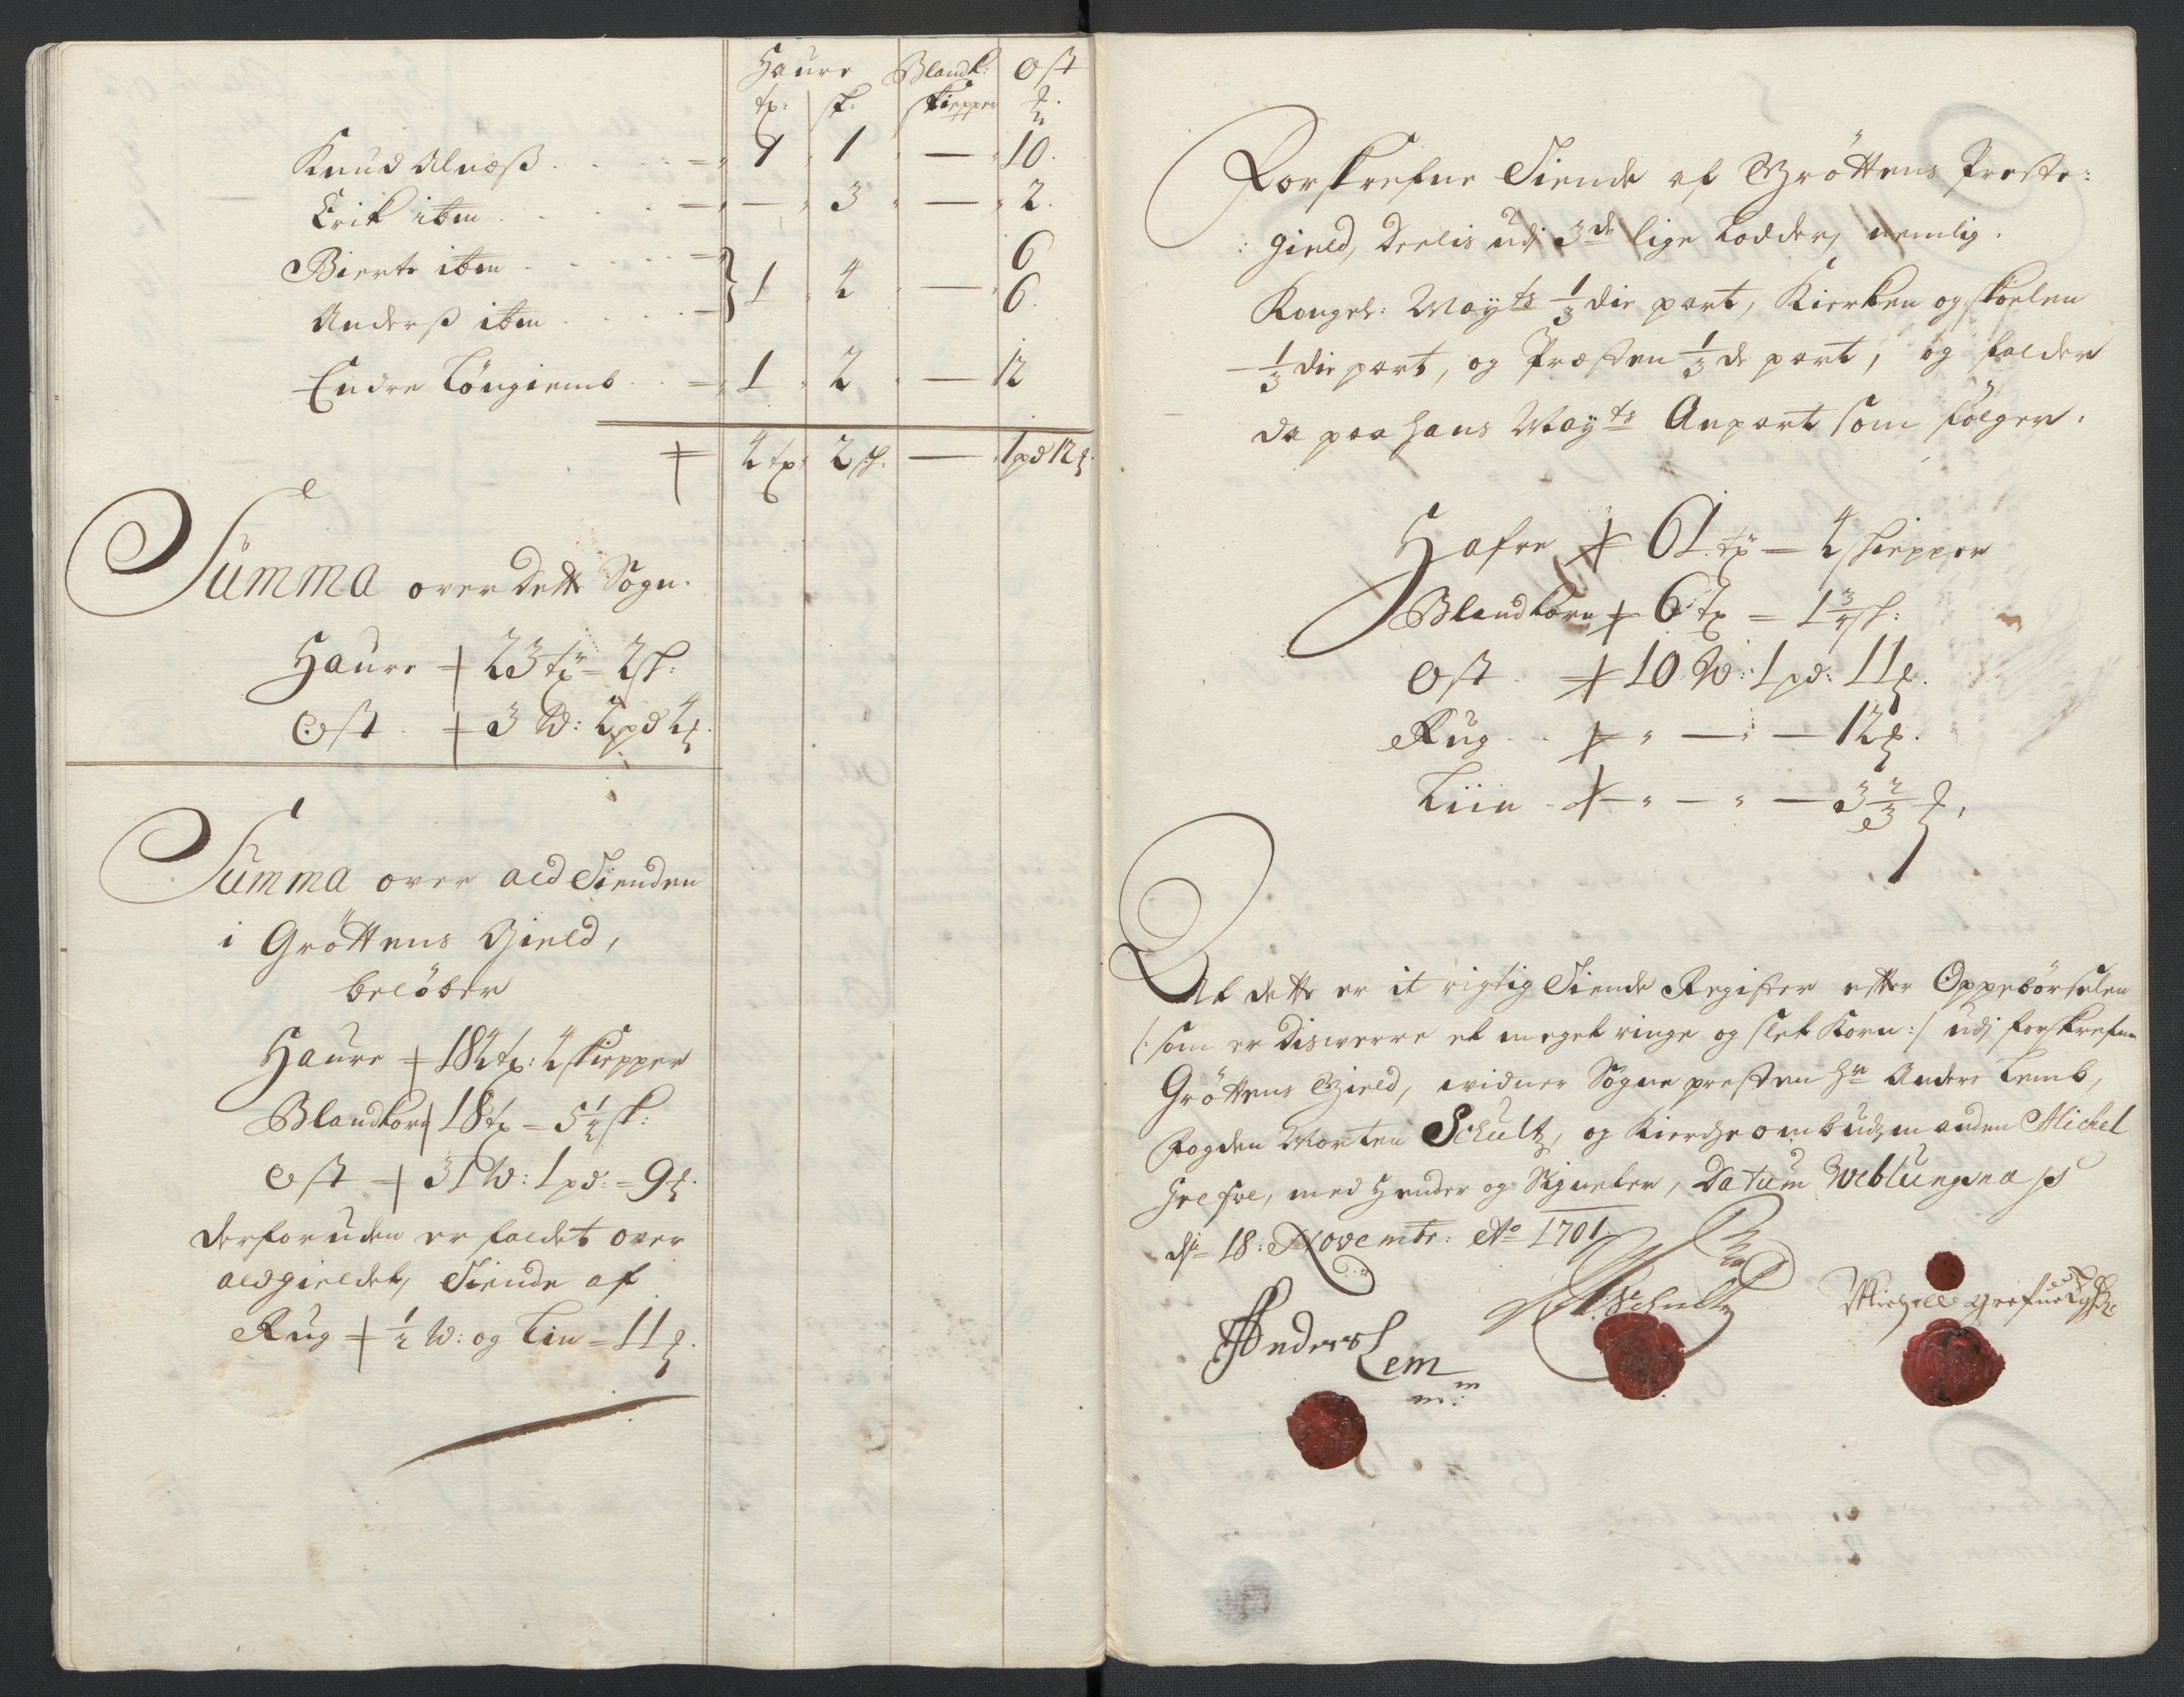 Haure Blandk: Ost
tr: sk: skiepper ℔
Knud Alnæs . . . . = 1 1 — 10.
Erik ibm . . . . . — — 3 — 2.
Bierte ibm . . . . . = 6
1 2 —
Anders ibm . . . . — 6.
Endre Löngiemb . . = 1 2 — 12
4 tr 2 sk. — 1 pd 12 ℔.
Summa over Dette Sogn.
Haure 23 tr = 2 sk:
Ost . 3 W: 2 pd 4 ℔.
Summa over ald Tienden
i Gröttens Gield,
belöber
Haure 184 tr: 4 skiepper
Blandkorn 18 tr = 5 1/4 sk:
Ost 31 W: 1 pd: = 9 ℔.
derforuden er faldet over
aldgieldet, Tiende af
Rug 1/2 W: og Lin = 11 ℔.
Forskrefne Tiende af Gröttens Preste:
: gield, Deelis udj 3de lige Lodder, nemlig.
Kongel: Mayts 1/3 die part, Kierken og skoelen
1/3 die part, og Præsten 1/3 de part, og falder
da paa hans Mayts Anpart som fölger.
Hafre 61 tr = 4 skiepper
Blandkorn 6 tr = 1 3/4 sk:
Ost . 10 W: 1 pd: 11 ℔.
Rug . . " — " — 12 ℔.
Liin . — " — " — 3 2/3 ℔.
At dette er it rigtig Tiende Register efter Oppebörselen
/: som er disverre et meget ringe og slet Korn :/ udj forskrefne
Gröttens Gield, vidner Sogne presten Hr Anders Lemb,
Fogden Morten Schultz, og Kierche ombudzmanden Michel
Grefve, med Hender og Signeter, Datum Weblungsnæs
d. 18: Novembr: Ao 1701.
Anders Lem
mm.
MSchultz
Michell Grefue